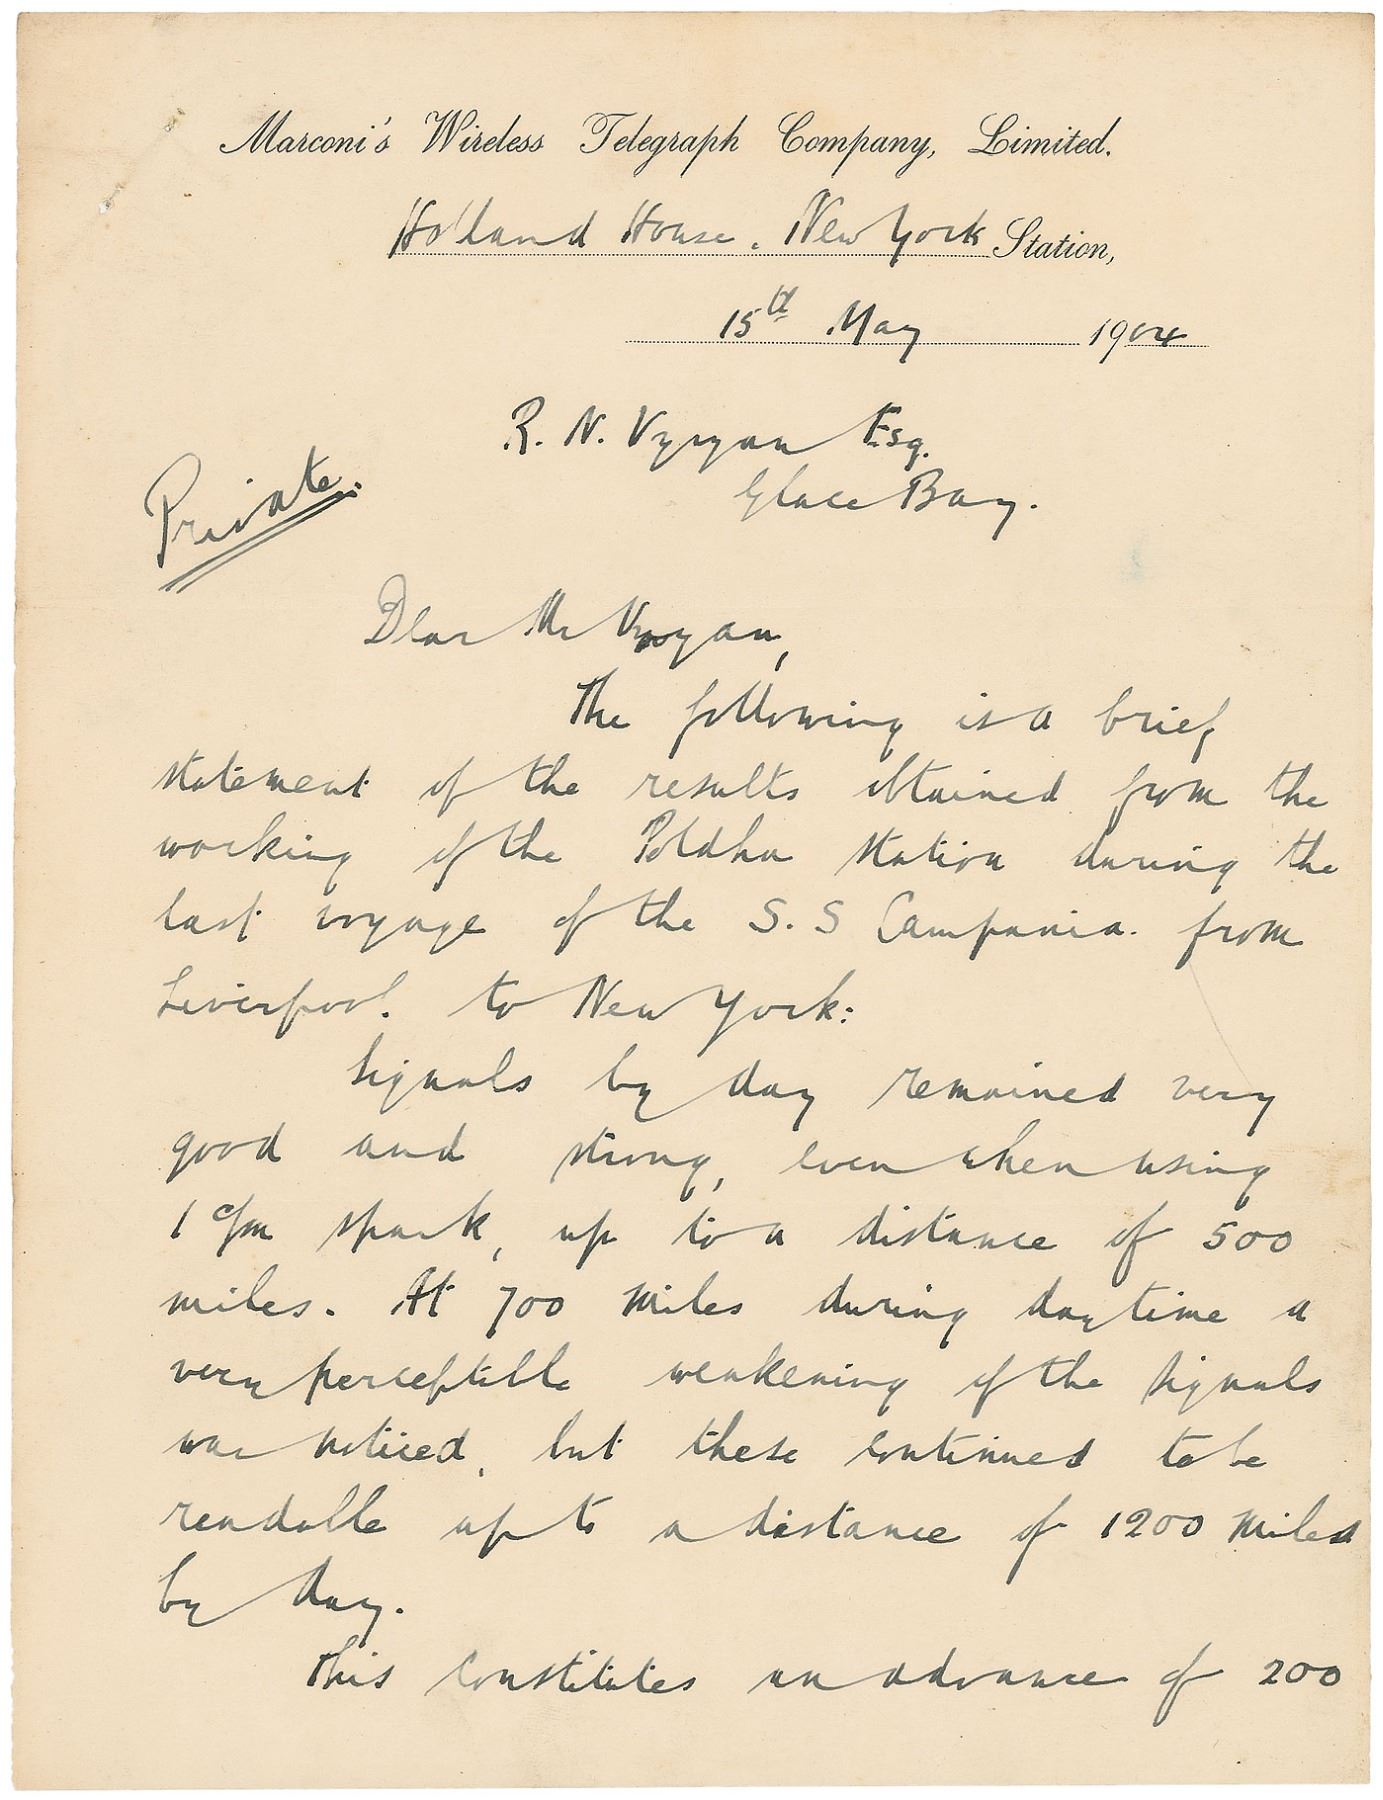 Marconi's Wireless Telegraph Company, Limited.
Holland House. New York Station,
15th May 1904
R. N. Vyvyan Esq.
Glace Bay.
Private.
Dear Mr Vyvyan,
The following is a brief
statement of the results obtained from the
working of the Poldhu station during the
last voyage of the S.S Campania. from
Liverpool. to New York:
Signals by day remained very
good and strong, even when using
1 c/m spark, up to a distance of 500
miles. At 700 miles during daytime a
very perceptible weakening of the signals
was noticed, but these continued to be
readable up to a distance of 1200 miles
by day.
This constitutes an advance of 200